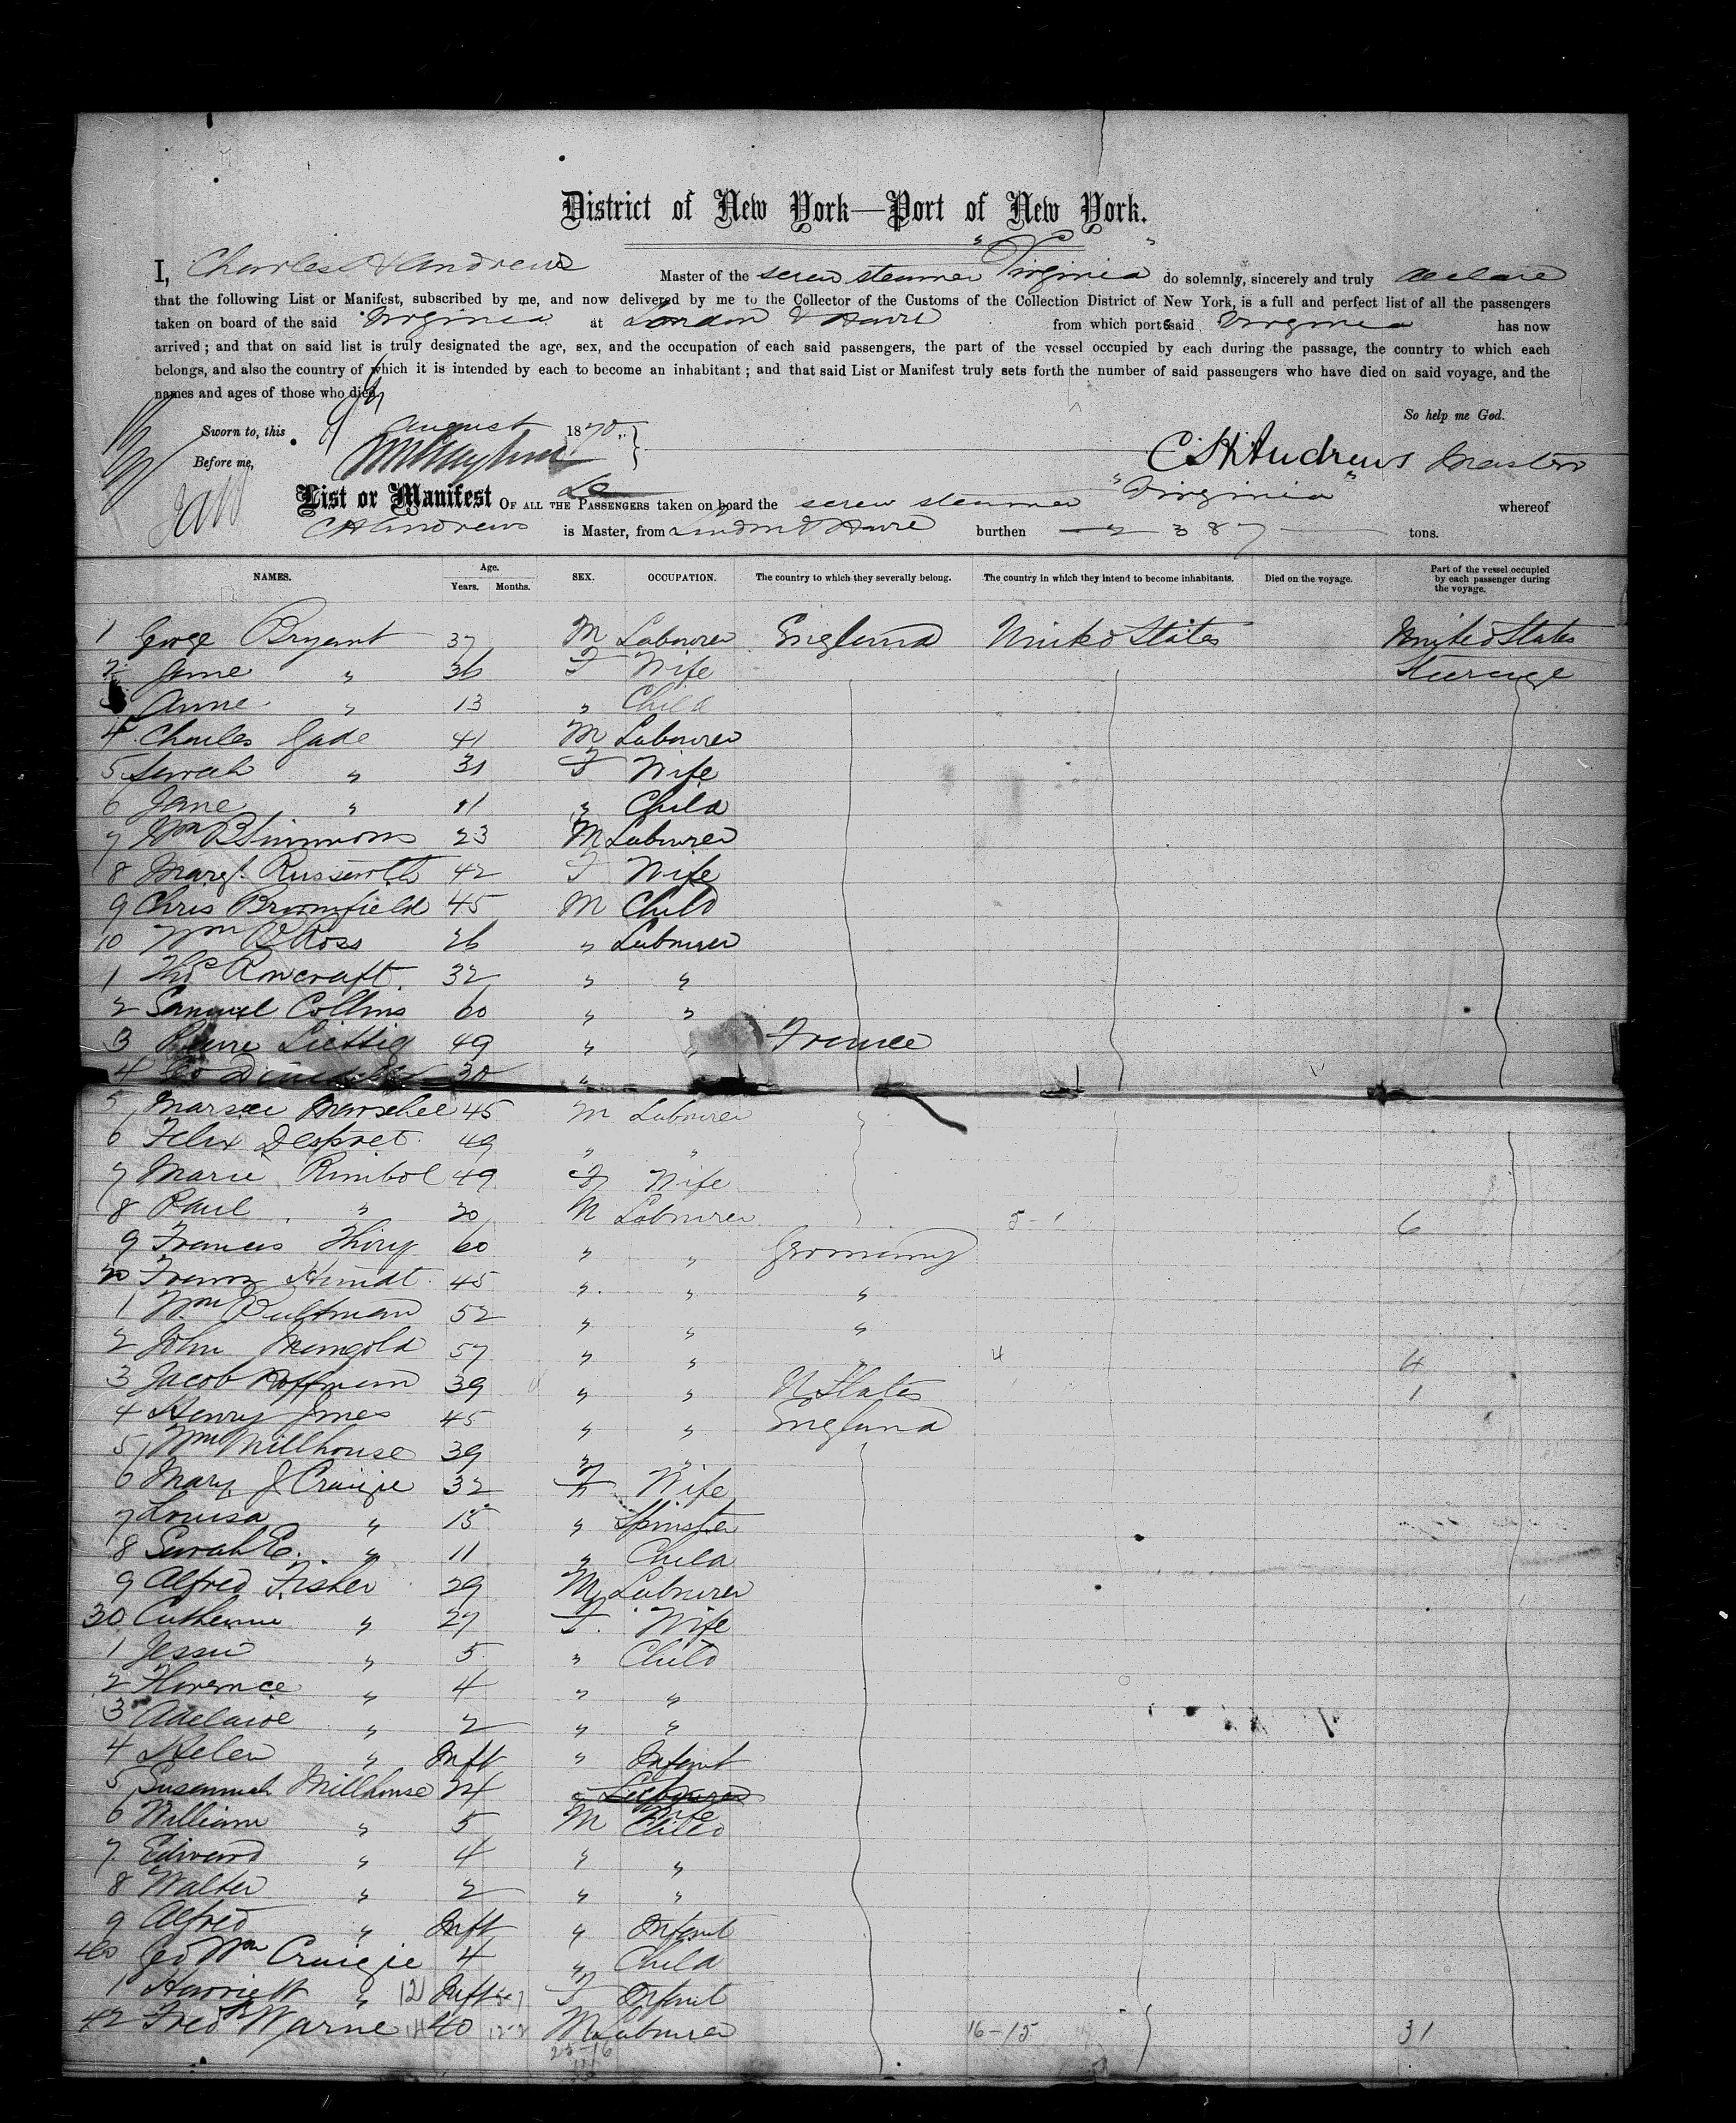 District of New York—Port of New York.
I, Charles H Andrews Master of the screw steamer "Virginia" do solemnly, sincerely and truly declare
that the following List or Manifest, subscribed by me, and now delivered by me to the Collector of the Customs of the Collection District of New York, is a full and perfect list of all the passengers
taken on board of the said Virginia at London & Havre from which port said Virginia has now
arrived; and that on said list is truly designated the age, sex, and the occupation of each said passengers, the part of the vessel occupied by each during the passage, the country to which each
belongs, and also the country of which it is intended by each to become an inhabitant; and that said List or Manifest truly sets forth the number of said passengers who have died on said voyage, and the
names and ages of those who died.
So help me God.
Sworn to, this 9th August 1870.
Before me,
C H Andrews Master
List or Manifest OF ALL THE PASSENGERS taken on board the screw steamer "Virginia" whereof
C H Andrews is Master, from London & Havre burthen 2387 tons.
NAMES. Age. Years. Months. SEX. OCCUPATION. The country to which they severally belong. The country in which they intend to become inhabitants. Died on the voyage. Part of the vessel occupied by each passenger during the voyage.
1 George Bryant 37 M Labourer England United States United States
2 Jane " 36 F Wife Steerage
Anne " 13 " Child
4 Charles Gade 41 M Labourer
5 Sarah " 31 F Wife
6 Jane " 11 " Child
7 Wm B Simmons 23 M Labourer
8 Margt. 42 F Wife
9 Chris Broomfield 45 M Child
10 Wm B Ross 26 " Labourer
1 Thos Rowcraft 32 " "
2 Samuel Collins 60 " "
3 Pierre 49 " " France
4 30 "
5 45 M Labourer
6 Felix Despret 49 " "
7 Marie Rimbol 49 F Wife
8 Paul " 20 M Labourer 5-1 6
9 Francis Thiry 60 " " Germany
20 Franz 45 " " "
1 Wm 52 " " "
2 John Mangold 57 " " " 4 4
3 Jacob Hoffman 39 " " U States 1
4 Henry Jones 45 " " England
5 Wm Millhouse 39 " "
6 Mary J Craigie 32 F Wife
7 Louisa " 15 " Spinster
8 Sarah E. " 11 " Child
9 Alfred Fisher 29 M Labourer
30 Catherine " 27 F. Wife
1 Jessie " 5 " Child
2 Florence " 4 " "
3 Adelaide " 2 " "
4 Helen " Inft " Infant
5 Susannah Millhouse 24 " Labourer Wife
6 William " 5 M Child
7 Edward " 4 " "
8 Walter " 2 " "
9 Alfred " Inft " Infant
40 Geo Wm Craigie 4 " Child
1 Harriett " Inft F Infant
42 Fredk Warne 40 M Labourer 16-15 31
25-16